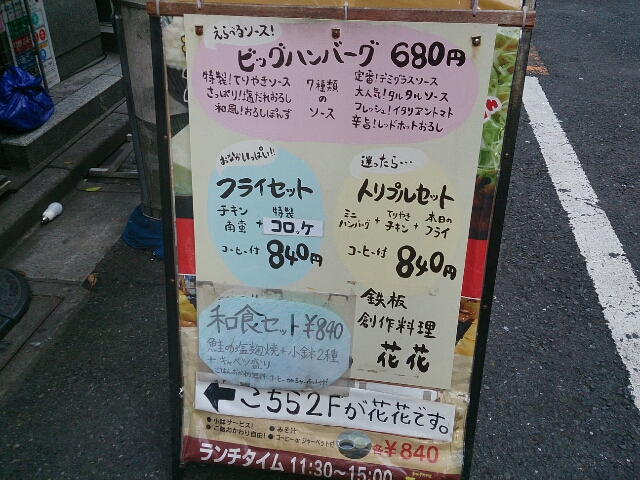 えらべるソース!
ビッグハンバーグ 680円
特製!てりやきソース
さっぱり!塩だれおろし
和風!おろしぽんず
7種類
の
ソース
定番!デミグラスソース
大人気!タルタルソース
フレッシュ!イタリアントマト
辛旨!レッドホットおろし
おなかいっぱい!!
フライセット
チキン南蛮 + 特製コロッケ
コーヒー付 840円
迷ったら…
トリプルセット
ミニハンバーグ + てりやきチキン + 本日のフライ
コーヒー付 840円
和食セット ¥840
鮭の塩麹焼+小鉢2種
+キャベツ盛り
鉄板
創作料理
花花
こちら2Fが花花です。
●小鉢サービス!
●ご飯おかわり自由!
●みそ汁
●コーヒーorシャーベット付
各¥840
ランチタイム 11:30〜15:00